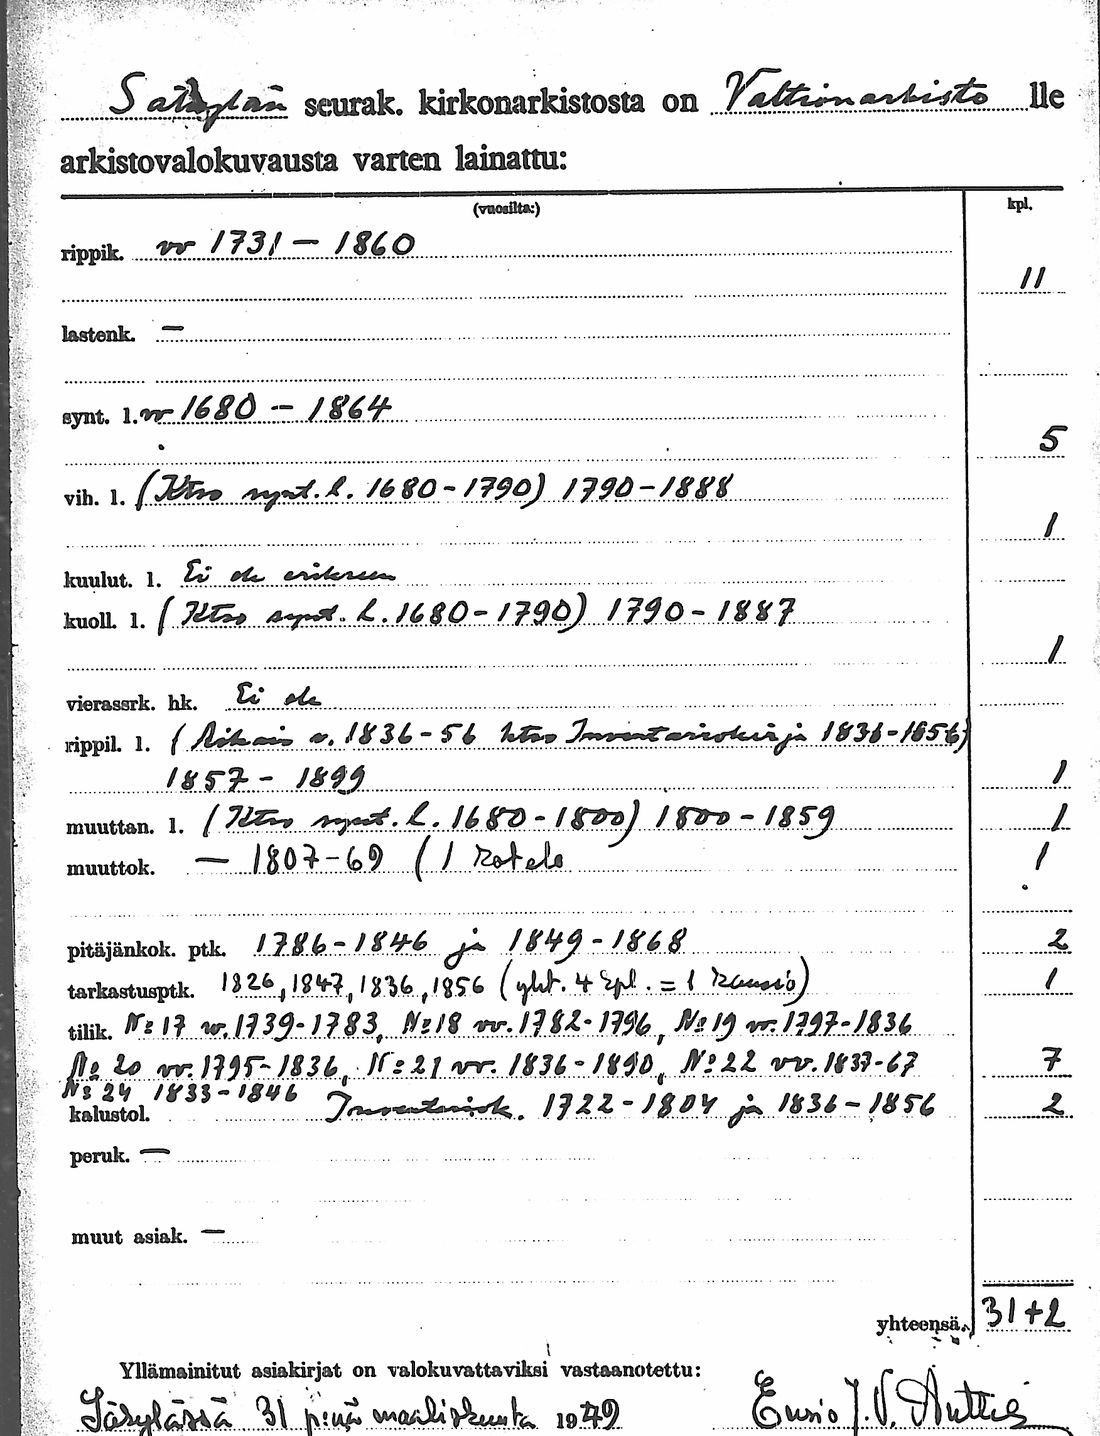 Säkylän seurak. kirkonarkistosta on Valtionarkisto lle
arkistovalokuvausta varten lainattu:
(vuosilta:) kpl.
rippik. vv 1731 – 1860
11
lastenk. –
synt. l. vv 1680 – 1864
5
vih. l. (Ktso synt. l. 1680-1790) 1790-1888
1
kuulut. l. Ei ole erikseen
kuoll. l. (Ktso synt. l. 1680-1790) 1790-1887
1
vierassrk. hk. Ei ole
rippil. l. ( v. 1836-56 ktso Inventariokirja 1836-1856)
1857 - 1899 1
muuttan. l. (Ktso synt. l. 1680-1800) 1800-1859 1
muuttok. – 1807-69 (1 kotelo 1
pitäjänkok. ptk. 1786-1846 ja 1849-1868 2
tarkastusptk. 1826, 1847, 1836, 1856 (yht. 4 kpl. = 1 kansio) 1
tilik. No 17 vv. 1739-1783, No 18 vv. 1782-1796, No 19 vv. 1797-1836
No 20 vv. 1795-1836, No 21 vv. 1836-1890, No 22 vv. 1837-67 7
No 24 1833-1846
kalustol. Inventariok. 1722-1804 ja 1836-1856 2
peruk. –
muut asiak. –
yhteensä 31+2
Yllämainitut asiakirjat on valokuvattaviksi vastaanotettu:
Säkylässä 31 p:nä maaliskuuta 1949 Ensio J.V. Anttila